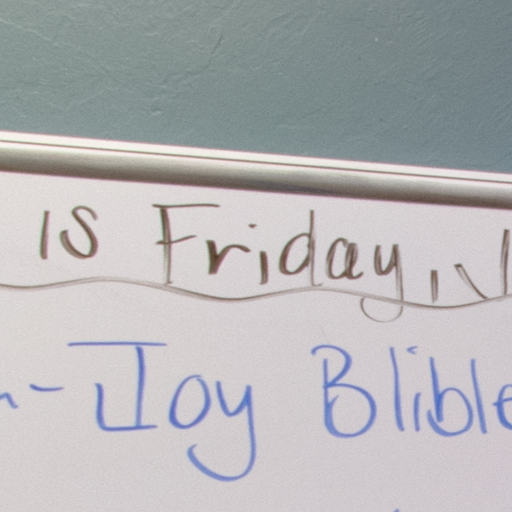 is Friday,
Joy Blible